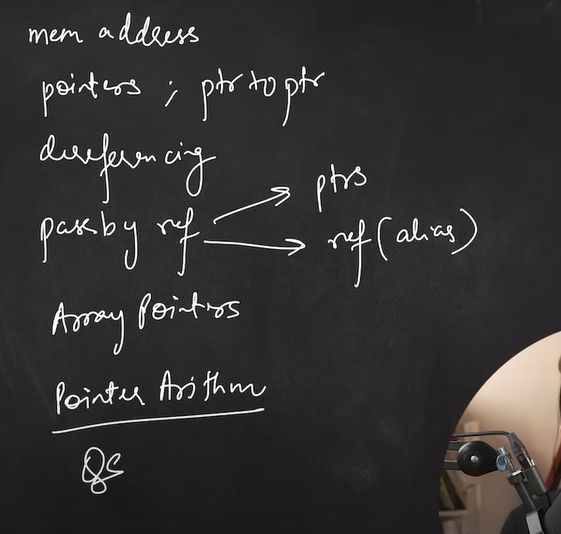 mem address
pointers ; ptr to ptr
dereferencing
pass by ref
ptrs
ref (alias)
Array Pointers
Pointer Arithm
Qs